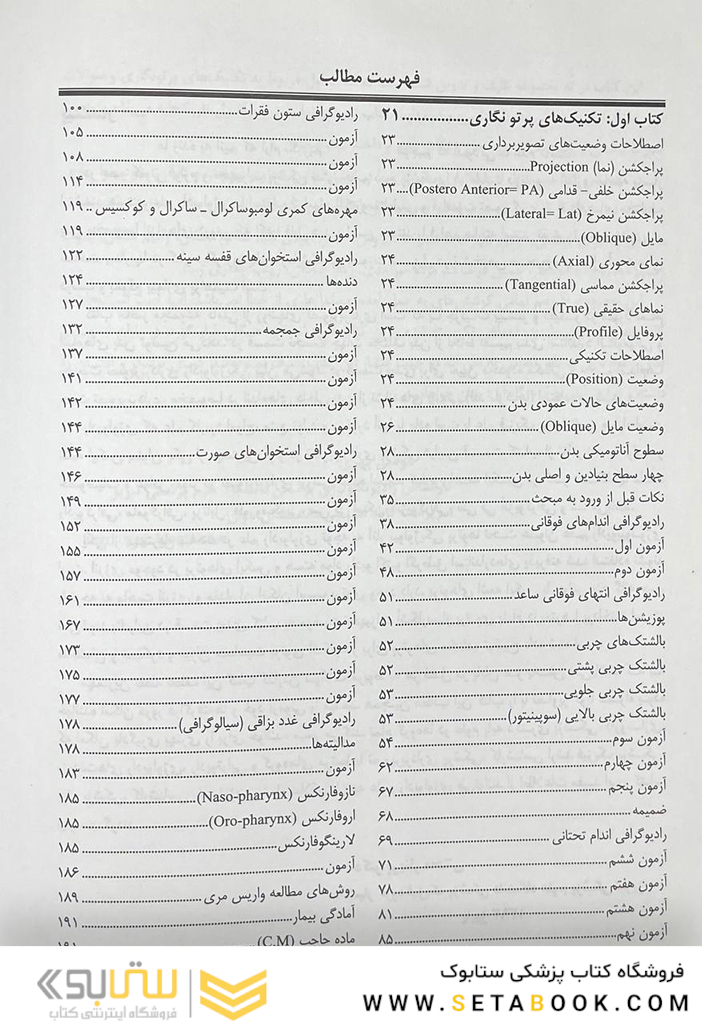 فهرست مطالب
کتاب اول: تکنیک‌های پرتو نگاری................۲۱
اصطلاحات وضعیت‌های تصویربرداری................۲۳
پراجکشن (نما) Projection................۲۳
پراجکشن خلفی- قدامی (Postero Anterior= PA)...۲۳
پراجکشن نیمرخ (Lateral= Lat)................۲۳
مایل (Oblique)................۲۳
نمای محوری (Axial)................۲۴
پراجکشن مماسی (Tangential)................۲۴
نماهای حقیقی (True)................۲۴
پروفایل (Profile)................۲۴
اصطلاحات تکنیکی................۲۴
وضعیت (Position)................۲۴
وضعیت‌های حالات عمودی بدن................۲۴
وضعیت مایل (Oblique)................۲۶
سطوح آناتومیکی بدن................۲۸
چهار سطح بنیادین و اصلی بدن................۲۸
نکات قبل از ورود به مبحث................۳۵
رادیوگرافی اندام‌های فوقانی................۳۸
آزمون اول................۴۲
آزمون دوم................۴۸
رادیوگرافی انتهای فوقانی ساعد................۵۱
پوزیشن‌ها................۵۱
بالشتک‌های چربی................۵۲
بالشتک چربی پشتی................۵۲
بالشتک چربی جلویی................۵۳
بالشتک چربی بالایی (سوپینیتور)................۵۳
آزمون سوم................۵۴
آزمون چهارم................۶۲
آزمون پنجم................۶۷
ضمیمه................۶۸
رادیوگرافی اندام تحتانی................۶۹
آزمون ششم................۷۱
آزمون هفتم................۷۸
آزمون هشتم................۸۱
آزمون نهم................۸۵
رادیوگرافی ستون فقرات................۱۰۰
آزمون................۱۰۵
آزمون................۱۰۸
آزمون................۱۱۴
مهره‌های کمری لومبوساکرال ـ ساکرال و کوکسیس ..۱۱۹
آزمون................۱۱۹
رادیوگرافی استخوان‌های قفسه سینه................۱۲۲
دنده‌ها................۱۲۴
آزمون................۱۲۷
رادیوگرافی جمجمه................۱۳۲
آزمون................۱۳۷
آزمون................۱۴۱
آزمون................۱۴۲
آزمون................۱۴۴
رادیوگرافی استخوان‌های صورت................۱۴۴
آزمون................۱۴۶
آزمون................۱۴۹
آزمون................۱۵۲
آزمون................۱۵۵
آزمون................۱۵۷
آزمون................۱۶۱
آزمون................۱۶۷
آزمون................۱۷۳
آزمون................۱۷۵
آزمون................۱۷۷
رادیوگرافی غدد بزاقی (سیالوگرافی)................۱۷۸
مدالیته‌ها................۱۷۸
آزمون................۱۸۳
نازوفارنکس (Naso-pharynx)................۱۸۵
اروفارنکس (Oro-pharynx)................۱۸۵
لارینگوفارنکس................۱۸۵
آزمون................۱۸۶
روش‌های مطالعه واریس مری................۱۸۹
آمادگی بیمار................۱۹۱
ماده حاجب (C.M)................۱۹۱
فروشگاه کتاب پزشکی ستابوک
WWW.SETABOOK.COM
ستابوک
فروشگاه اینترنتی کتاب